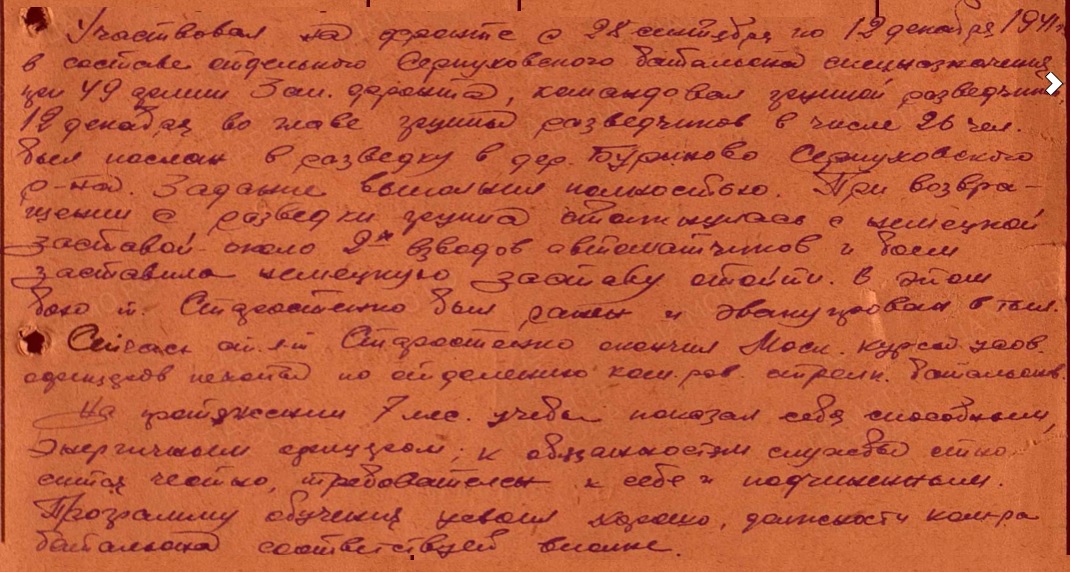 Участвовал на фронте с 28 сентября по 12 декабря 1941 г.
в составе отдельного Серпуховского батальона спецназначения
при 49 армии Зап. фронта, командовал группой разведчиков,
12 декабря во главе группы разведчиков в числе 26 чел.
был послан в разведку в дер. Буриново Серпуховского
р-на. Задание выполнил полностью. При возвра-
щении с разведки группа столкнулась с немецкой
заставой около 2х взводов автоматчиков и боем
заставила немецкую заставу отойти. В этом
бою т. Старостенко был ранен и эвакуирован в тыл.
Сейчас ст. л-т Старостенко окончил Моск. курсы усов.
офицеров пехоты по отделению ком-ров стрелк. батальонов.
На протяжении 7 мес. учебы показал себя способным,
энергичным офицером; к обязанностям службы отно-
сится честно, требователен к себе и подчиненным.
Программу обучения усвоил хорошо, должности ком-ра
батальона соответствует вполне.